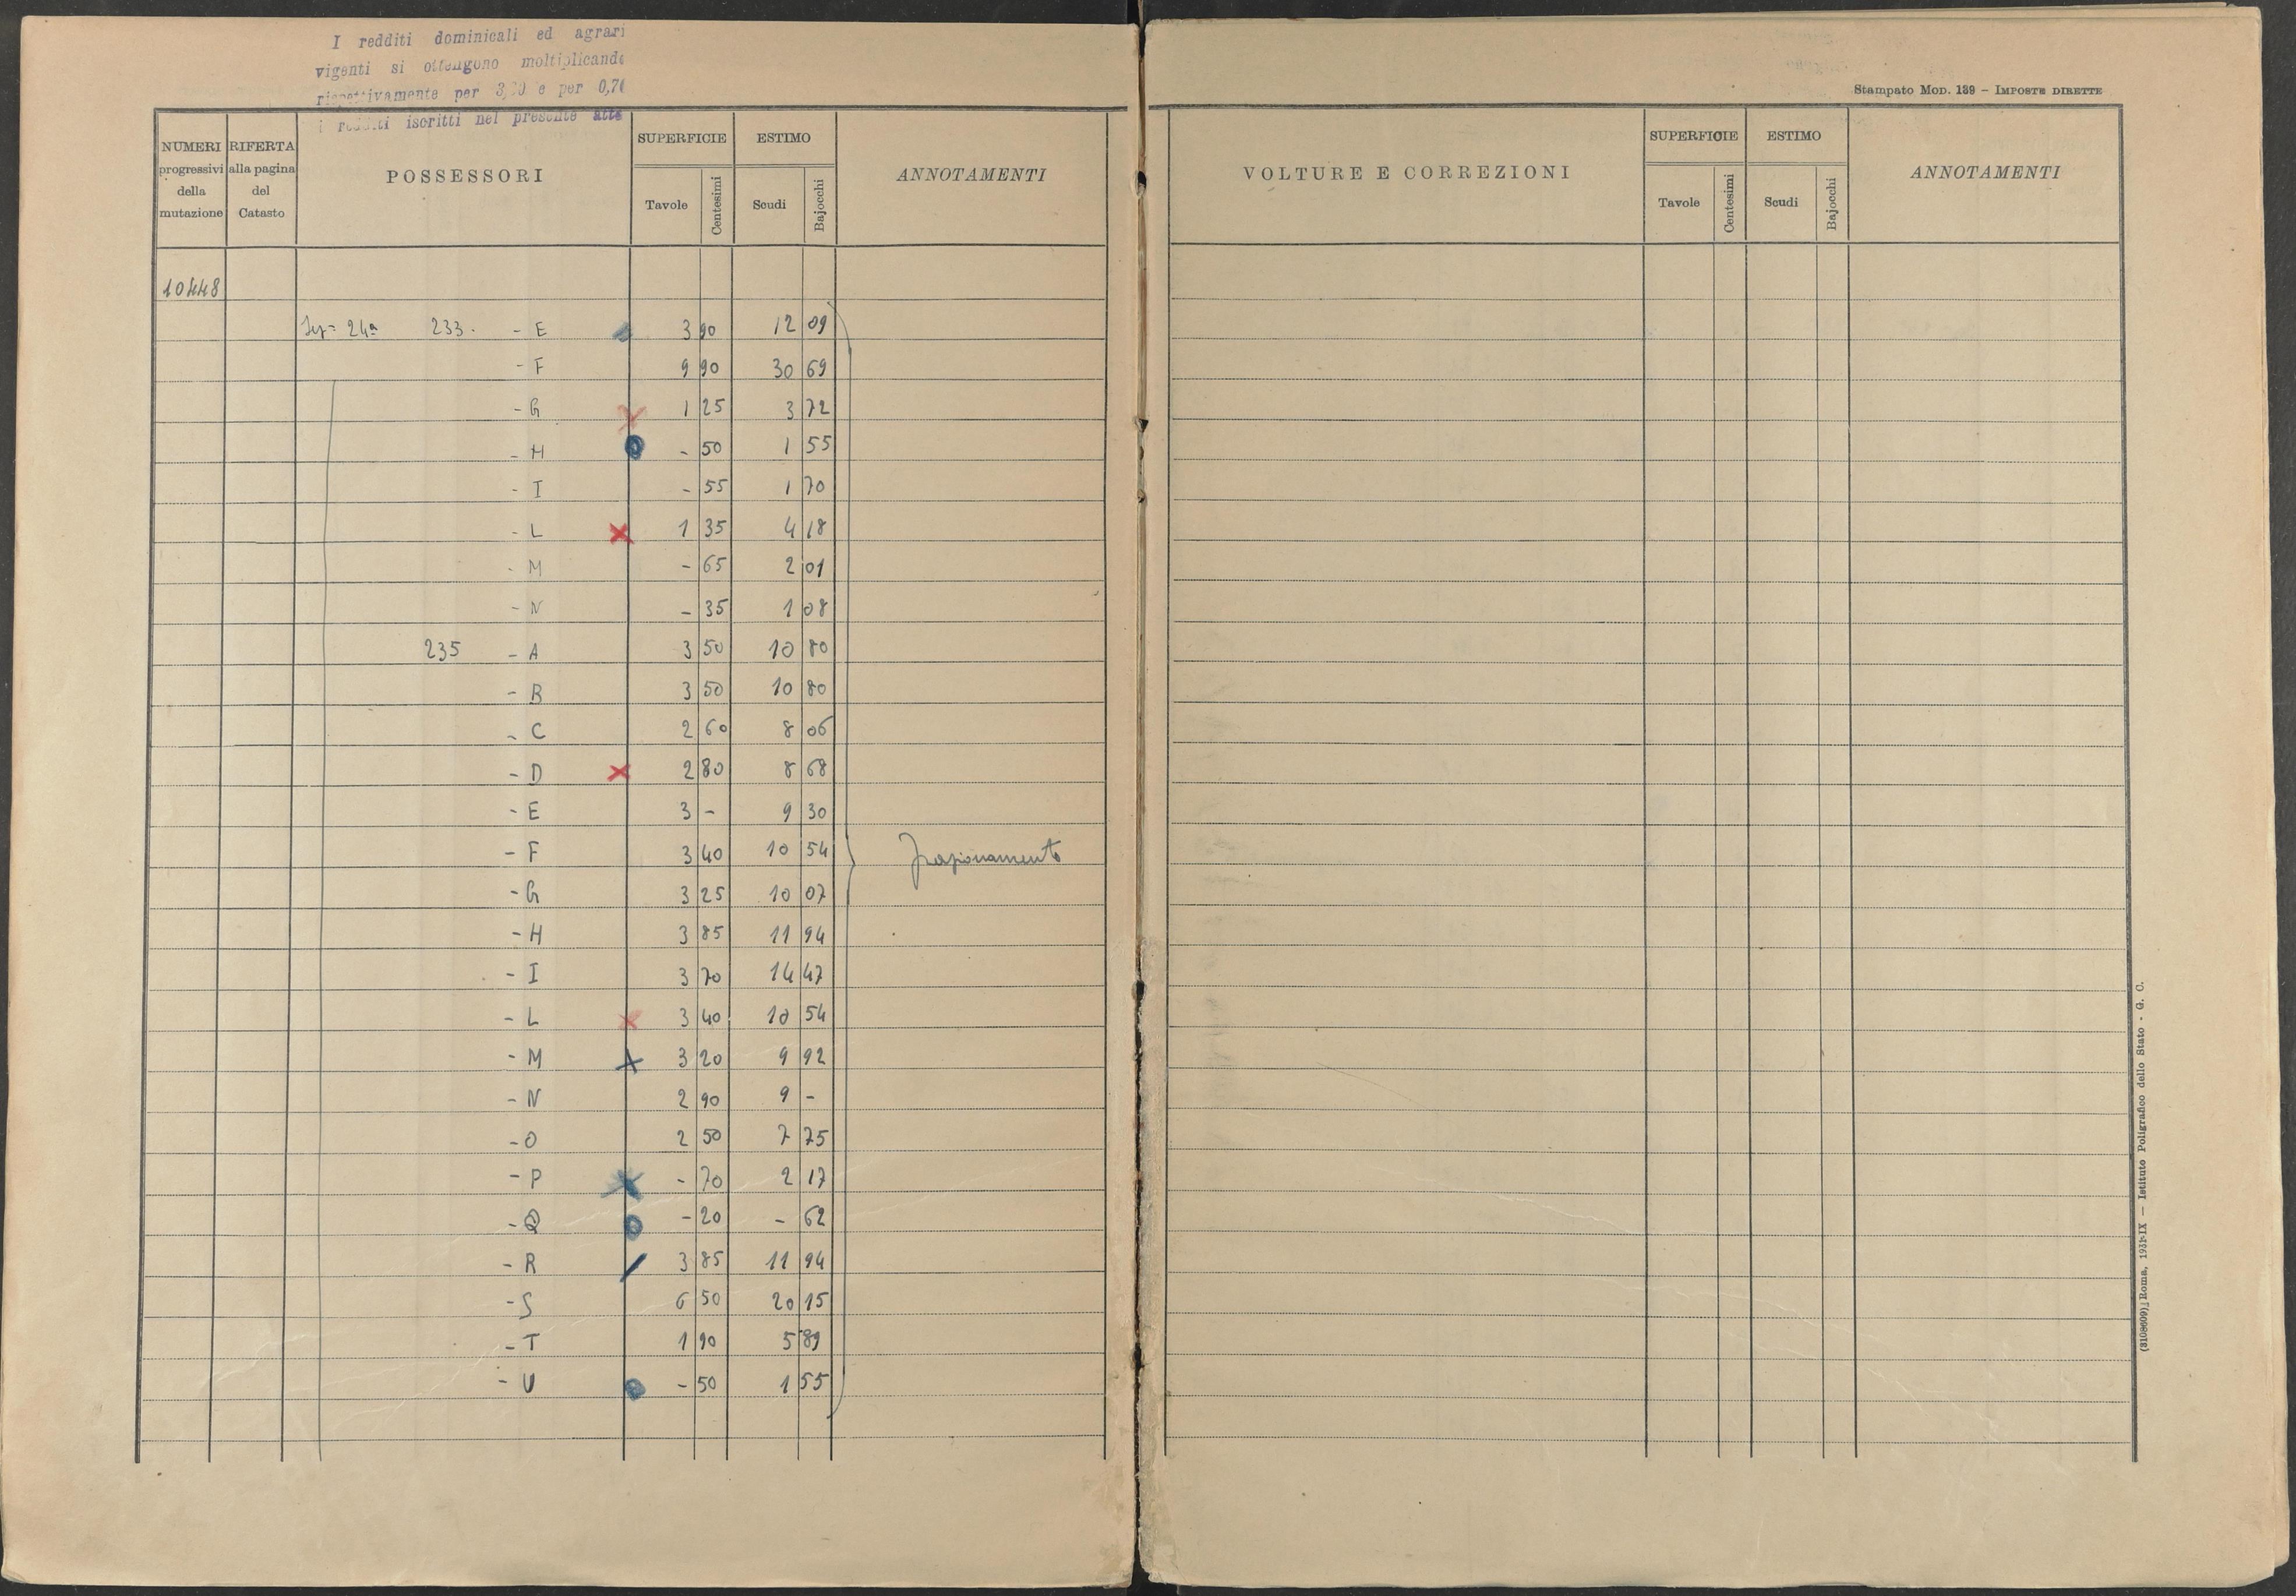 I redditi dominicali ed agrari
vigenti si ottengono moltiplicando
rispettivamente per e per 0,70
i redditi iscritti nel presente atto
Stampato Mod. 139 – Imposte dirette
NUMERI progressivi della mutazione
RIFERTA alla pagina del Catasto
POSSESSORI
SUPERFICIE
Tavole
Centesimi
ESTIMO
Scudi
Bajocchi
ANNOTAMENTI
VOLTURE E CORREZIONI
SUPERFICIE
Tavole
Centesimi
ESTIMO
Scudi
Bajocchi
ANNOTAMENTI
10448
24ª 233. - E 3 90 12 09
- F 9 90 30 69
- G 1 25 3 72
- H - 50 1 55
- I - 55 1 70
- L 1 35 4 18
- M - 65 2 01
- N - 35 1 08
235 - A 3 50 10 80
- B 3 50 10 80
- C 2 60 8 06
- D 2 80 8 68
- E 3 - 9 30
- F 3 40 10 54 frazionamento
- G 3 25 10 07
- H 3 85 11 94
- I 3 70 14 47
- L 3 40 10 54
- M 3 20 9 92
- N 2 90 9 -
- O 2 50 7 75
- P - 70 2 17
- Q - 20 - 62
- R 3 85 11 94
- S 6 50 20 15
- T 1 90 5 89
- U - 50 1 55
(3108609) Roma, 1931-IX — Istituto Poligrafico dello Stato - G. C.